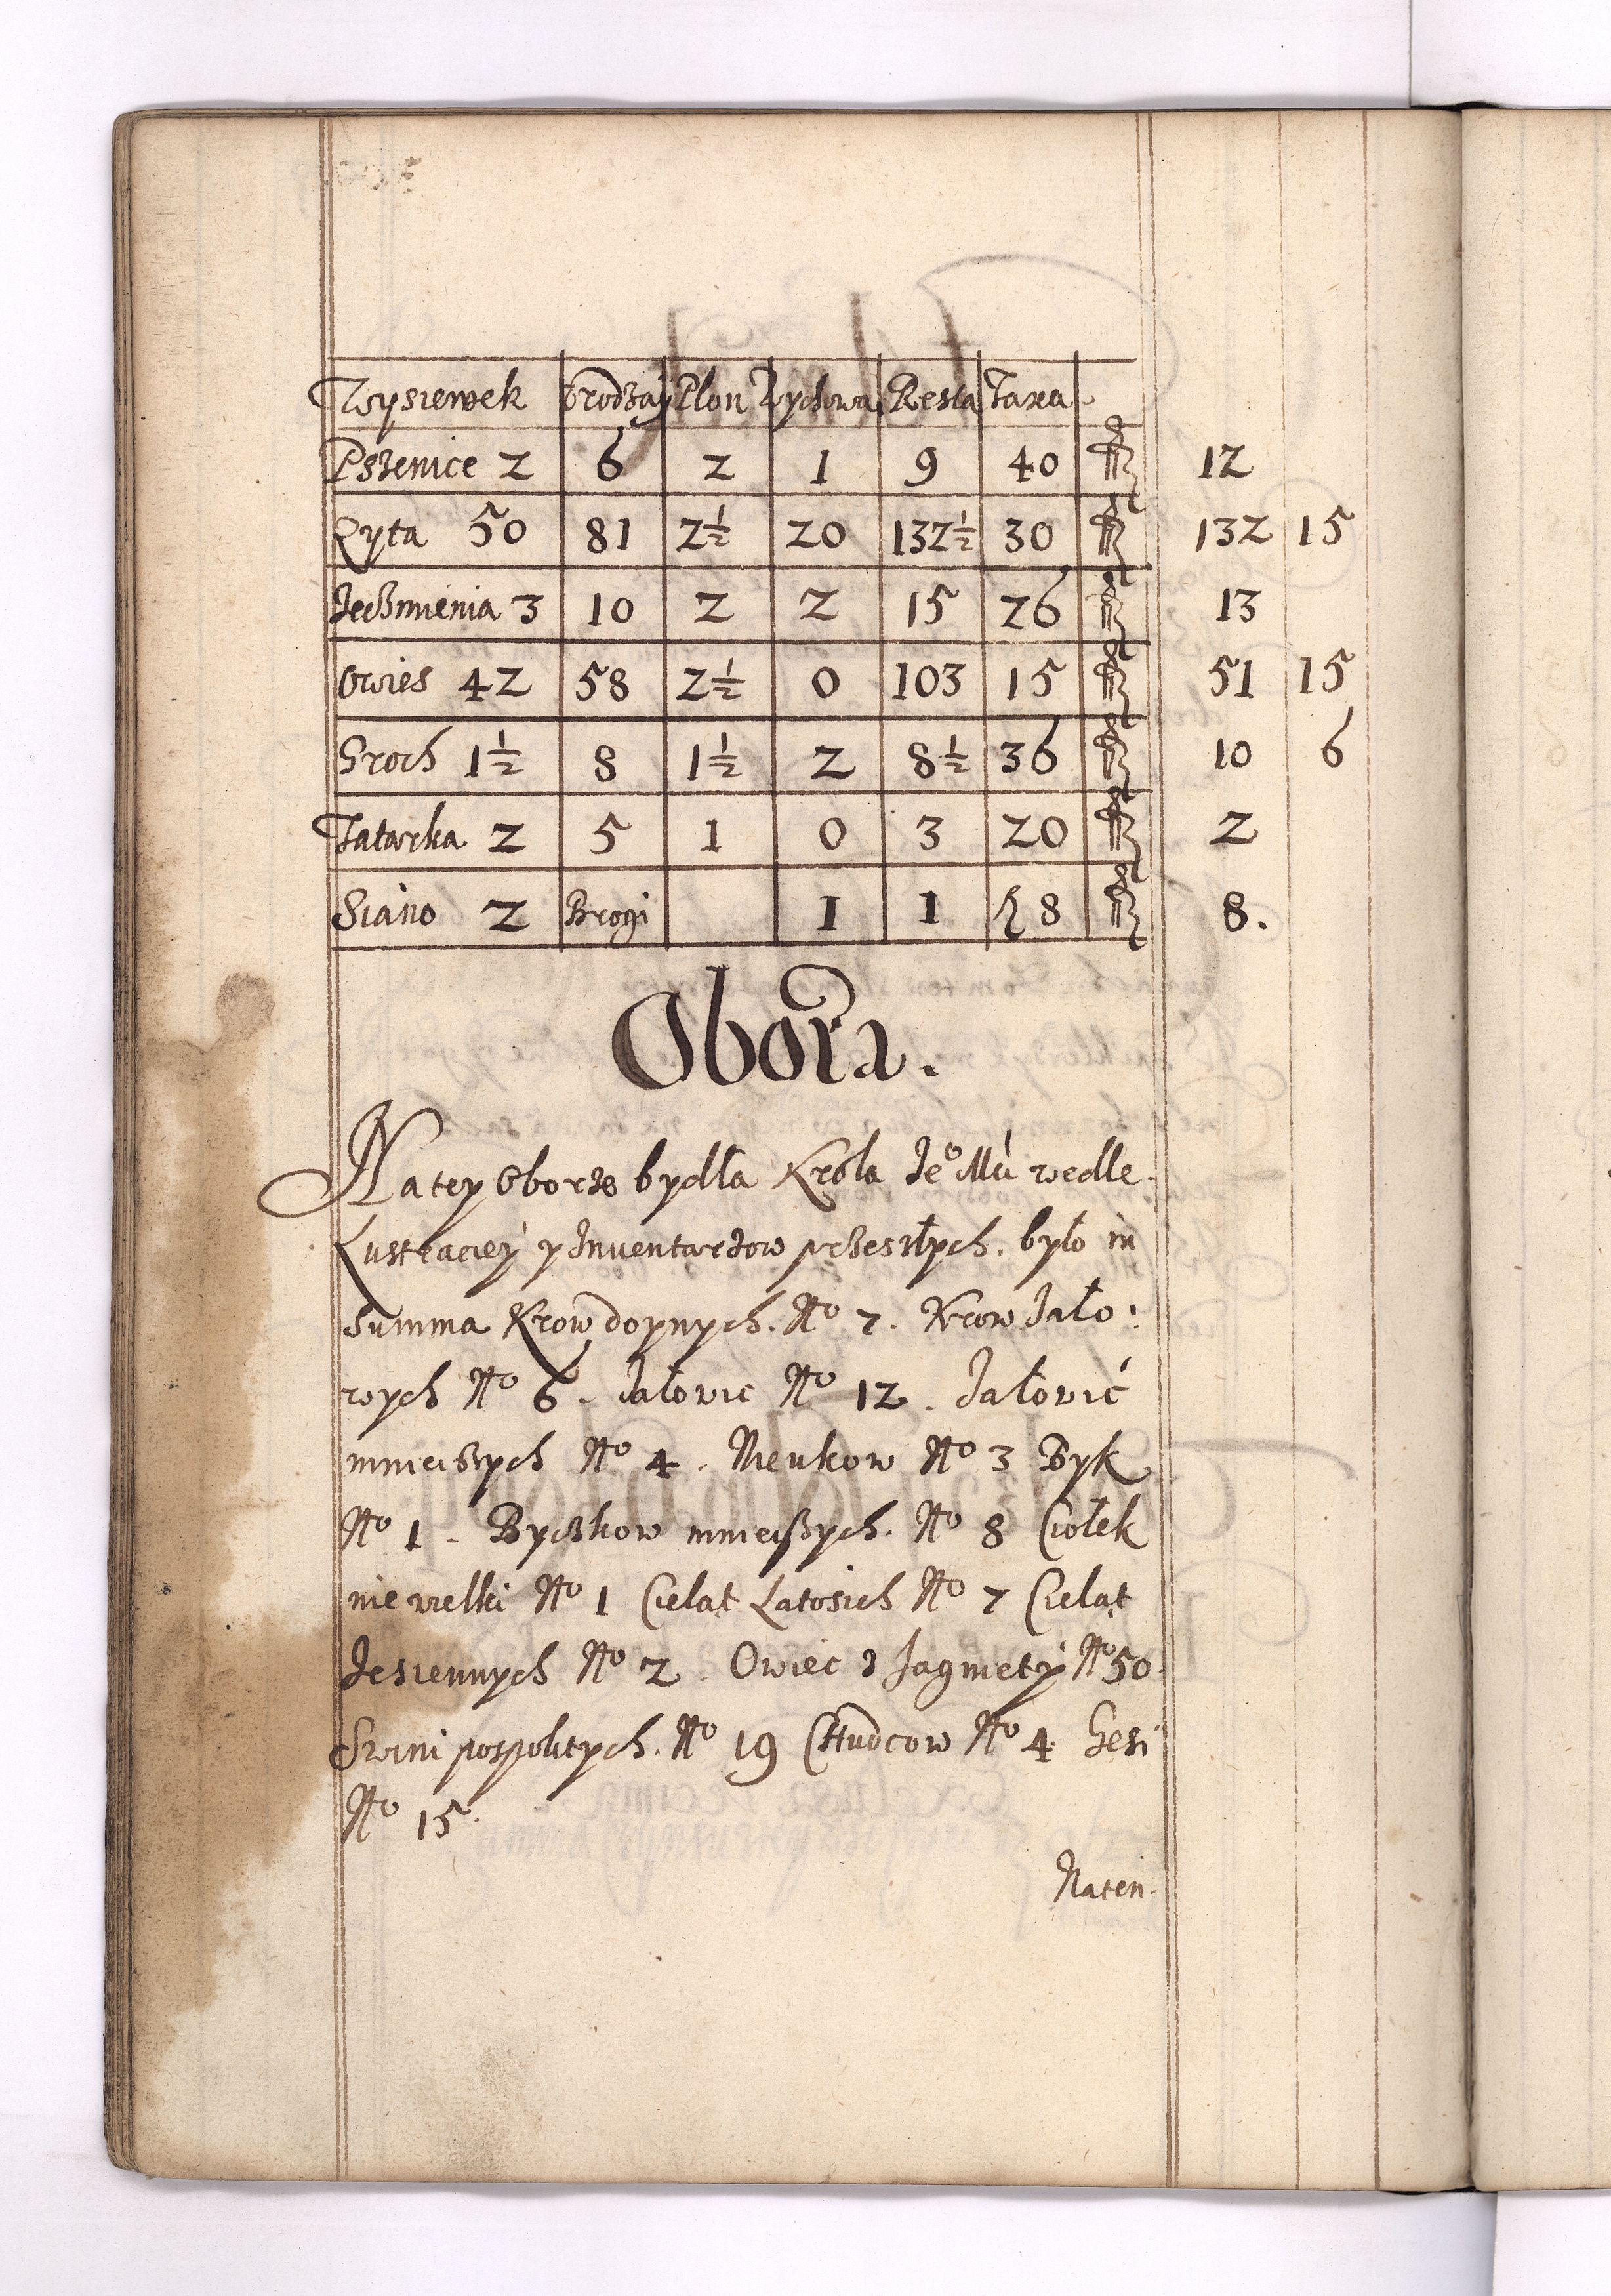 Wysiewek Urodzay Plon Wychowa Resta Taxa
Pszenice 2 6 2 1 9 40 fl 12
Zyta 50 81 2½ 20 132½ 30 fl 132 15
Jeczmienia 3 10 2 2 15 26 fl 13
Owies 42 58 2½ 0 103 15 fl 51 15
Groch 1½ 8 1½ 2 8½ 36 fl 10 6
Tatarka 2 5 1 0 3 20 fl 2
Siano 2 Brogi 1 1 8 fl 8.
Obora.
Na tey Oborze bydła Krola Jeº Mći wedle
Lustraciey y Inventarzow przeszłych. było in
summa Krow doynych. Nº 7. Krow Jało:
wych Nº 6. Jałowic Nº 12. Jałowić
mnieiszych Nº 4. Nieukow Nº 3 Byk
Nº 1. Byczkow mnieiszych. Nº 8 Ciołek
nie wielki Nº 1 Cieląt Latosich Nº 7 Cieląt
Jesiennych Nº 2. Owiec z Jagniety Nº 50.
Swini pospolitych. Nº 19 Chudcow Nº 4 Gesi
Nº 15.
Naten.